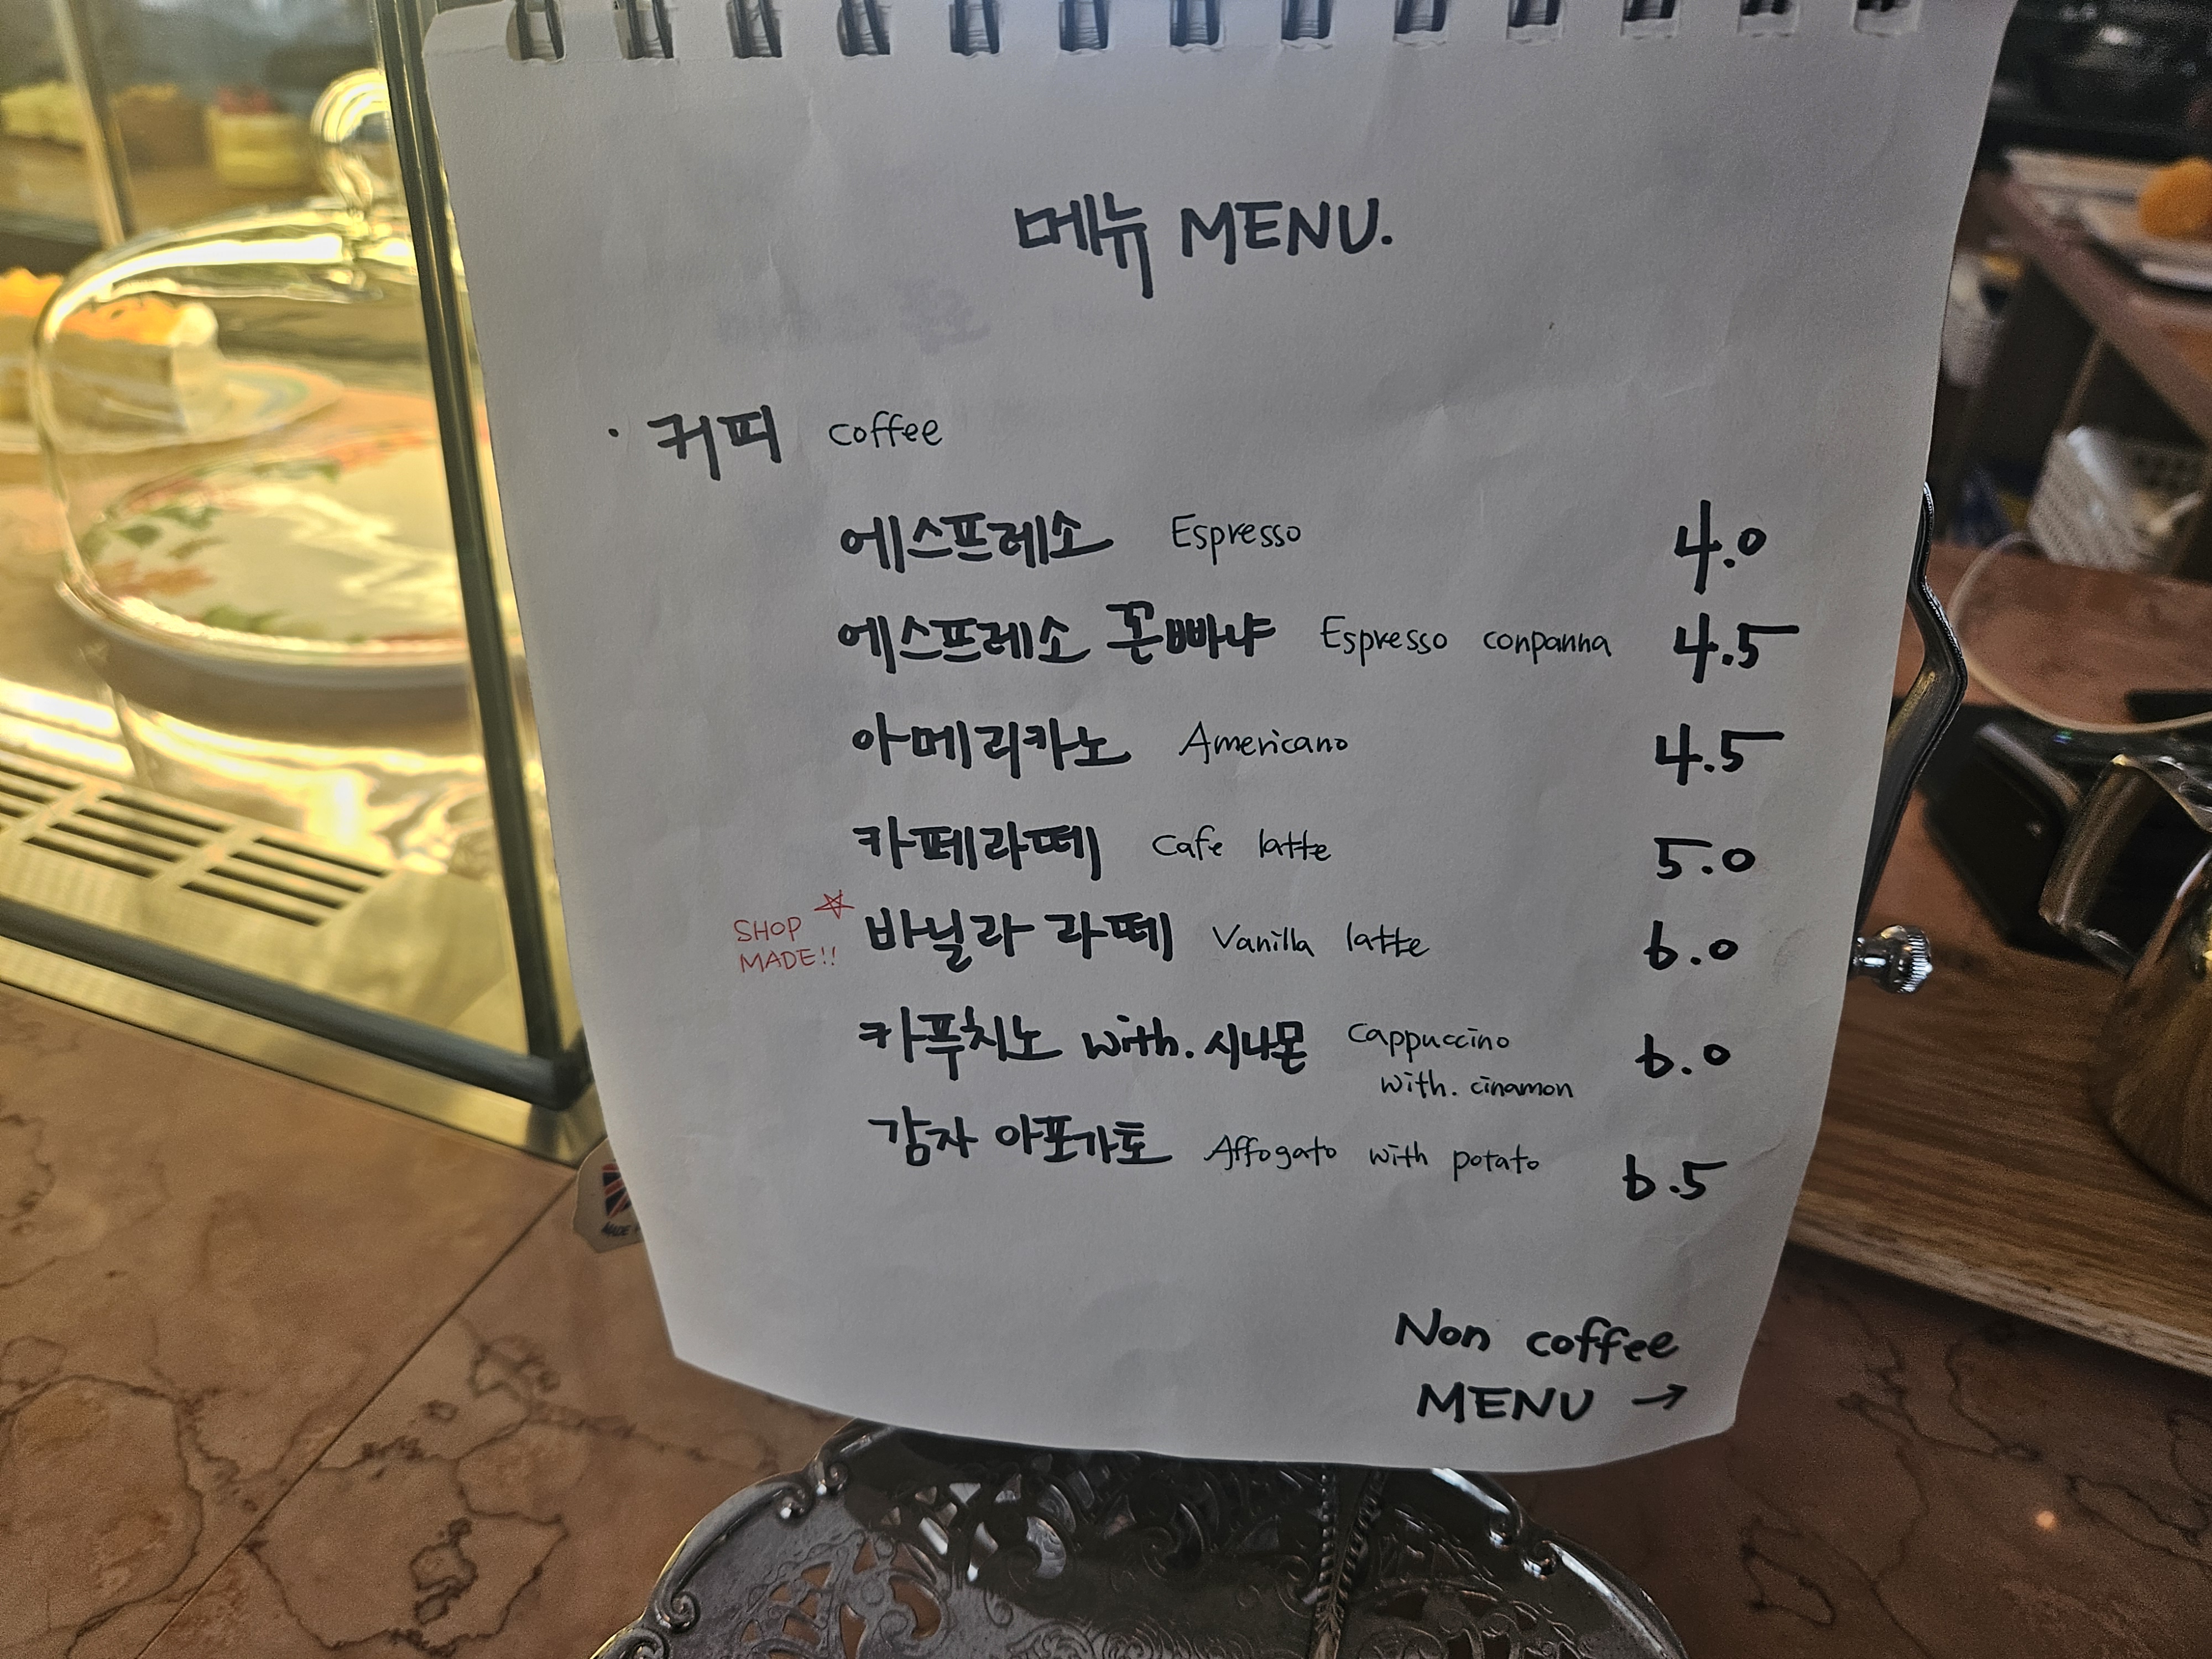 메뉴 MENU.
· 커피 coffee
에스프레소 Espresso 4.0
에스프레소 꼰빠냐 Espresso conpanna 4.5
아메리카노 Americano 4.5
카페라떼 Cafe latte 5.0
SHOP MADE!! ☆ 바닐라 라떼 Vanilla latte 6.0
카푸치노 with. 시나몬 Cappuccino with. cinamon 6.0
감자 아포가토 Affogato with potato 6.5
Non coffee
MENU →
MADE